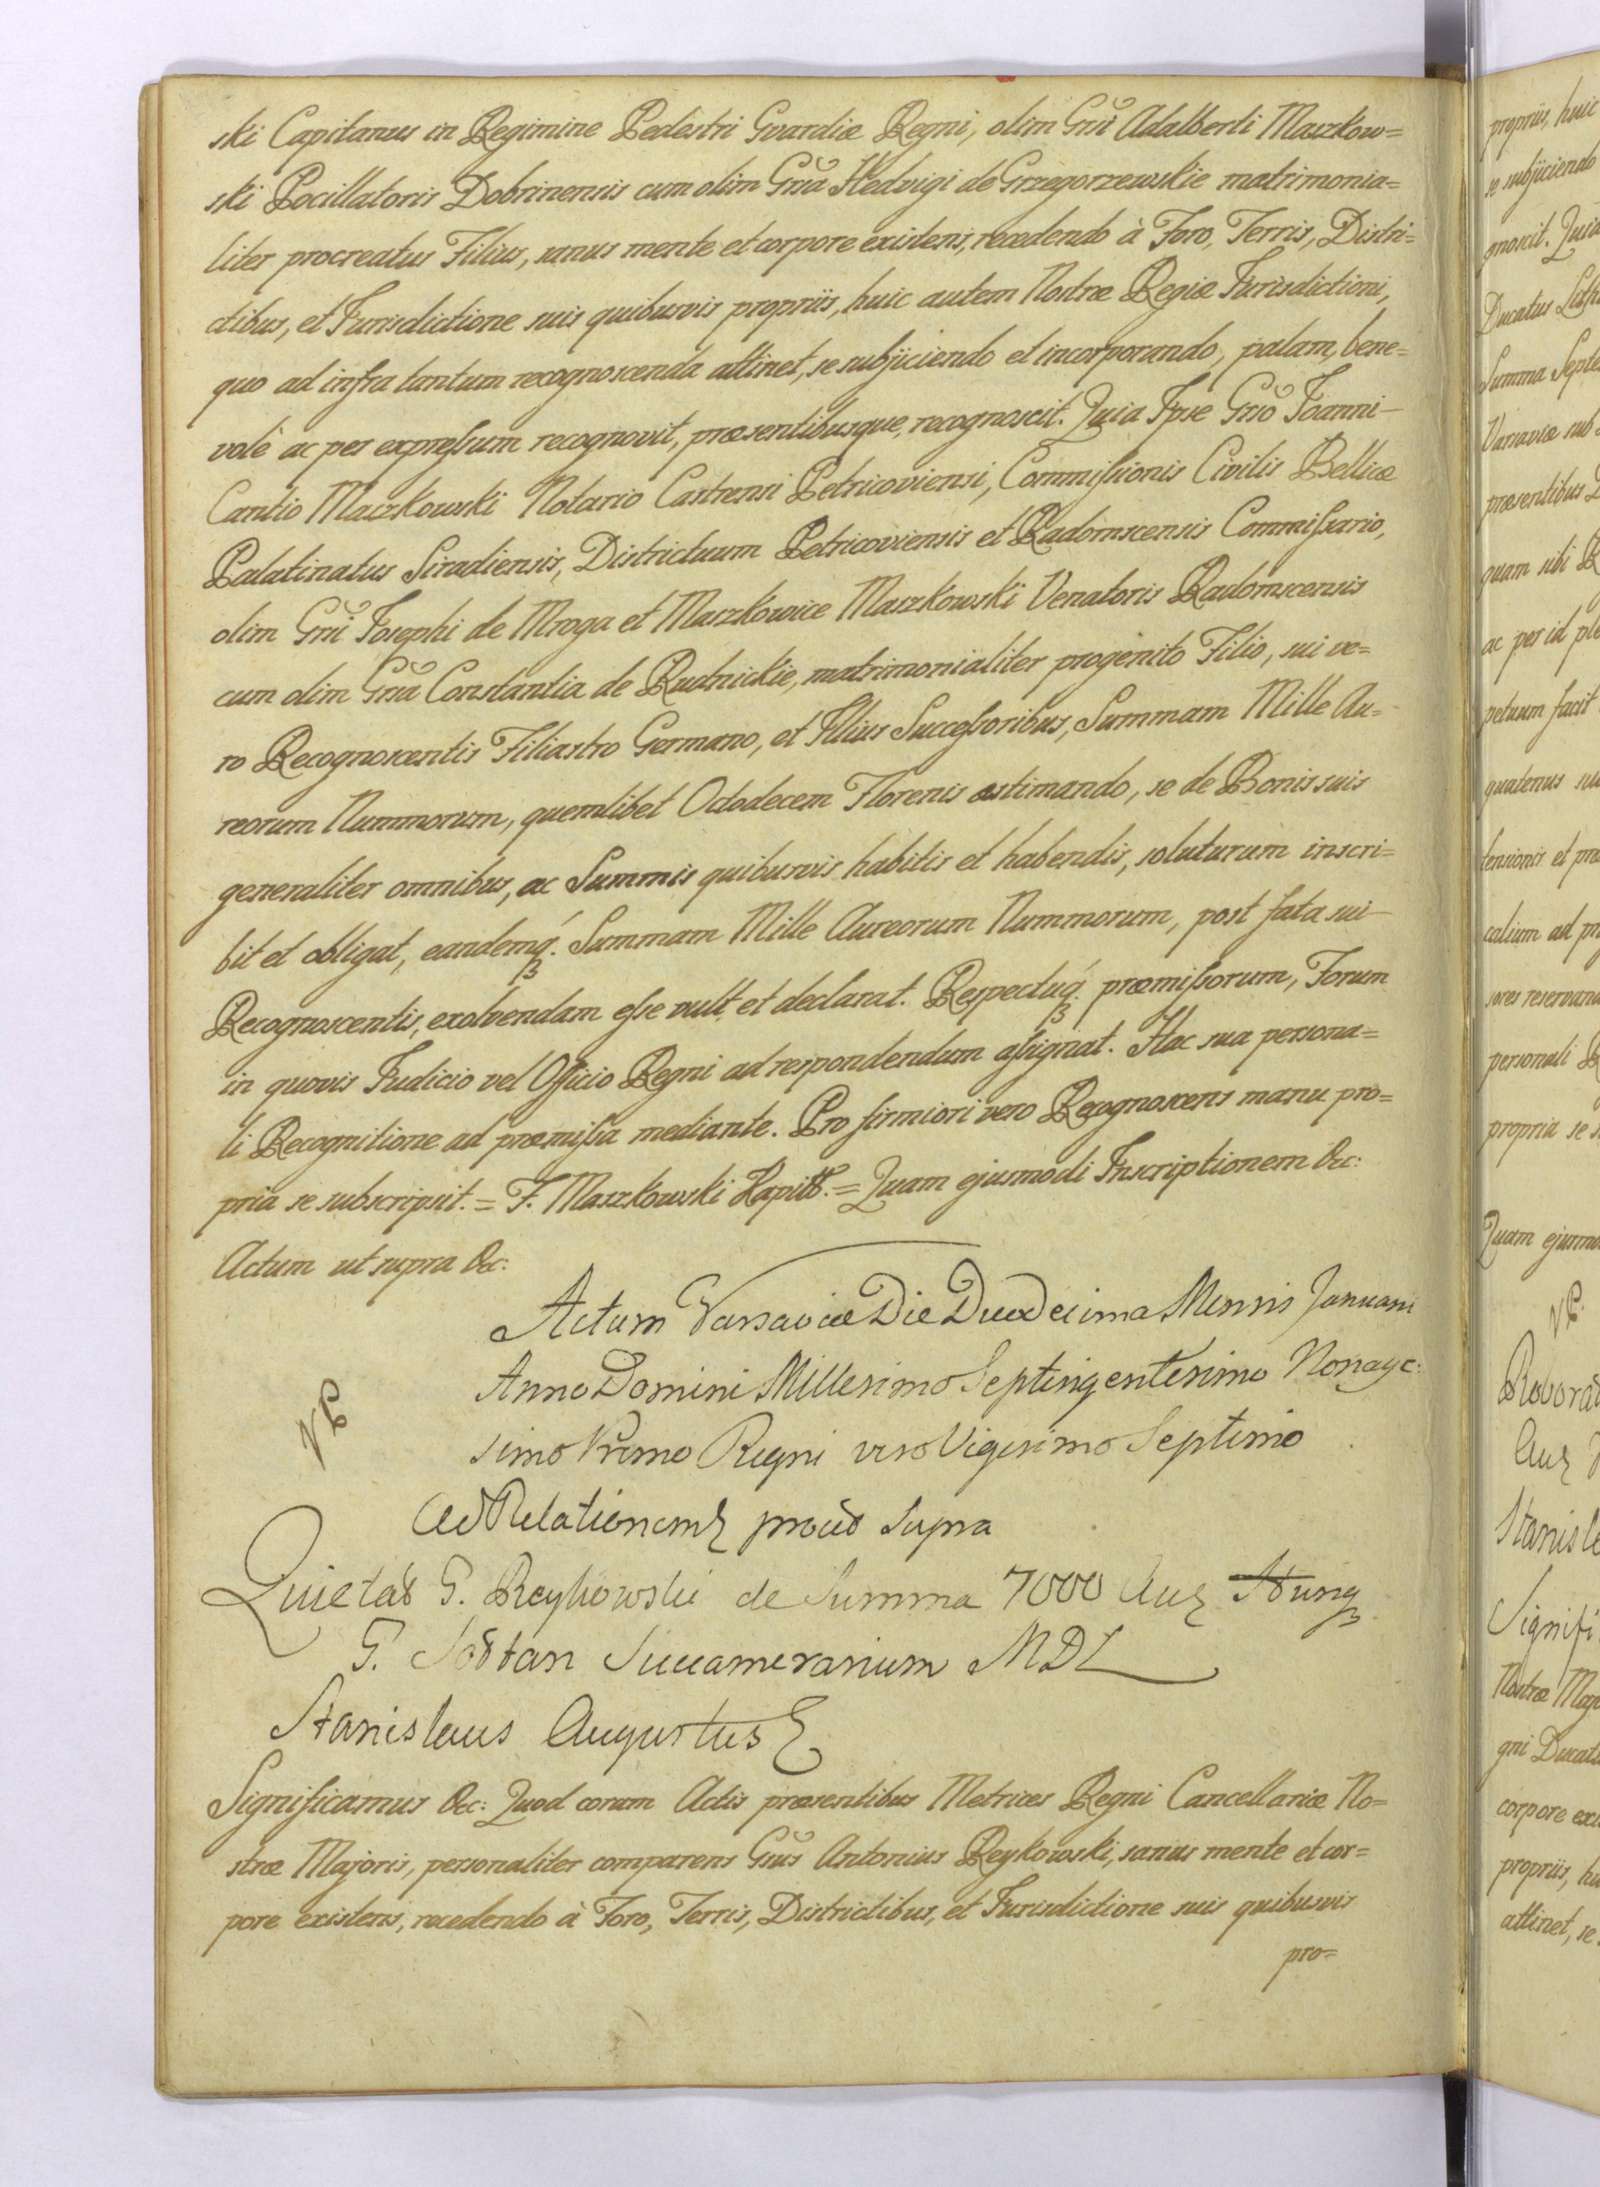 ski Capitaneus in Regimine Pedestri Gvardiæ Regni, olim Gñi Adalberti Maszkow=
ski Pocillatoris Dobrinensis cum olim Gñã Hedvigi de Grzegorzewskie matrimonia=
liter procreatus Filius, sanus mente et corpore existens, recedendo à Foro, Terris, Distri=
ctibus, et Jurisdictione suis quibusvis propriis, huic autem Nostræ Regiæ Jurisdictioni,
quo ad infra tantum recognoscenda attinet, se subjiciendo et incorporando, palam, bene=
volè ac per expressum recognovit, præsentibusque, recognoscit. Quia Ipse Gño Joanni
Cantio Maszkowski Notario Castrensi Petricoviensi, Commissionis Civilis Bellicæ
Palatinatus Siradiensis, Districtuum Petricoviensis et Radomscensis Commissario,
olim Gñi Josephi de Mroga et Maszkowice Maszkowski Venatoris Radomscensis
cum olim Gñã Constantia de Rudnickie, matrimonialiter progenito Filio, sui ve=
ro Recognoscentis Filiastro Germano, et Illius Successoribus, Summam Mille Au=
reorum Nummorum, quemlibet Octodecem Florenis æstimando, se de Bonis suis
generaliter omnibus, ac Summis quibusvis habitis et habendis, soluturum inscri=
bit et obligat, eandemq́. Summam Mille Aureorum Nummorum, post fata sui
Recognoscentis, exolvendam esse vult et declarat. Respectuq́. præmissorum, Forum
in quovis Judicio vel Officio Regni ad respondendum assignat. Hac sua persona=
li Recognitione ad præmissa mediante. Pro firmiori vero Recognoscens manu pro=
pria se subscripsit. = F. Maszkowski Kapitt. = Quam ejusmodi Inscriptionem &c:
Actum ut supra &c:
Actum Varsaviæ Die Duodecima Mensis Januarii
Anno Domini Millesimo Septingentesimo Nonage:
simo Primo Regni vero Vigesimo Septimo
Ad Relationem prout supra
Quietat G. Reykowski de Summa 7000 Aur Hung
G. Sołtan Succamerarium MDL
Stanislaus Augustus
Significamus &c: Quod coram Actis præsentibus Metrices Regni Cancellariæ No=
stræ Majoris, personaliter comparens Gñus Antonius Reykowski, sanus mente et cor=
pore existens, recedendo à Foro, Terris, Districtibus, et Jurisdictione suis quibusvis
pro=
propriis, huic
se subjiciendo
gnoscit. Quia
Ducatus
Summa
Varsaviæ sub
præsentibus
quam sibi
ac per id
petuum facit
quatenus
tensionis et
calium ad
sores
personali
propria se
Quam
Stanisl
Signifi
Nostræ
gni
corpore
propriis,
attinet, se